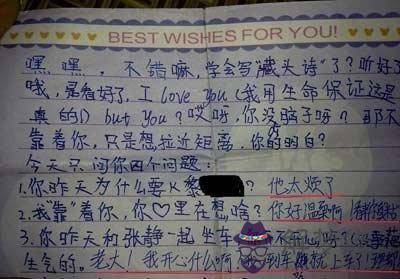 BEST WISHES FOR YOU!
嘿嘿，不错嘛，学会写"藏头诗"了？听好了
哦，是看好了，I love You(我用生命保证这是
真的) but You？哎呀，你没脑子呀？耶不
靠着你，只是想拉近距离，你的明白？
今天只问你四个问题：
1.你昨天为什么要K黎 ？他太烦了
2.我"靠"着你，你♡里在想啥？你好温柔啊
3.你昨天和张静一起坐车
生气的。老大！我开心什么啊